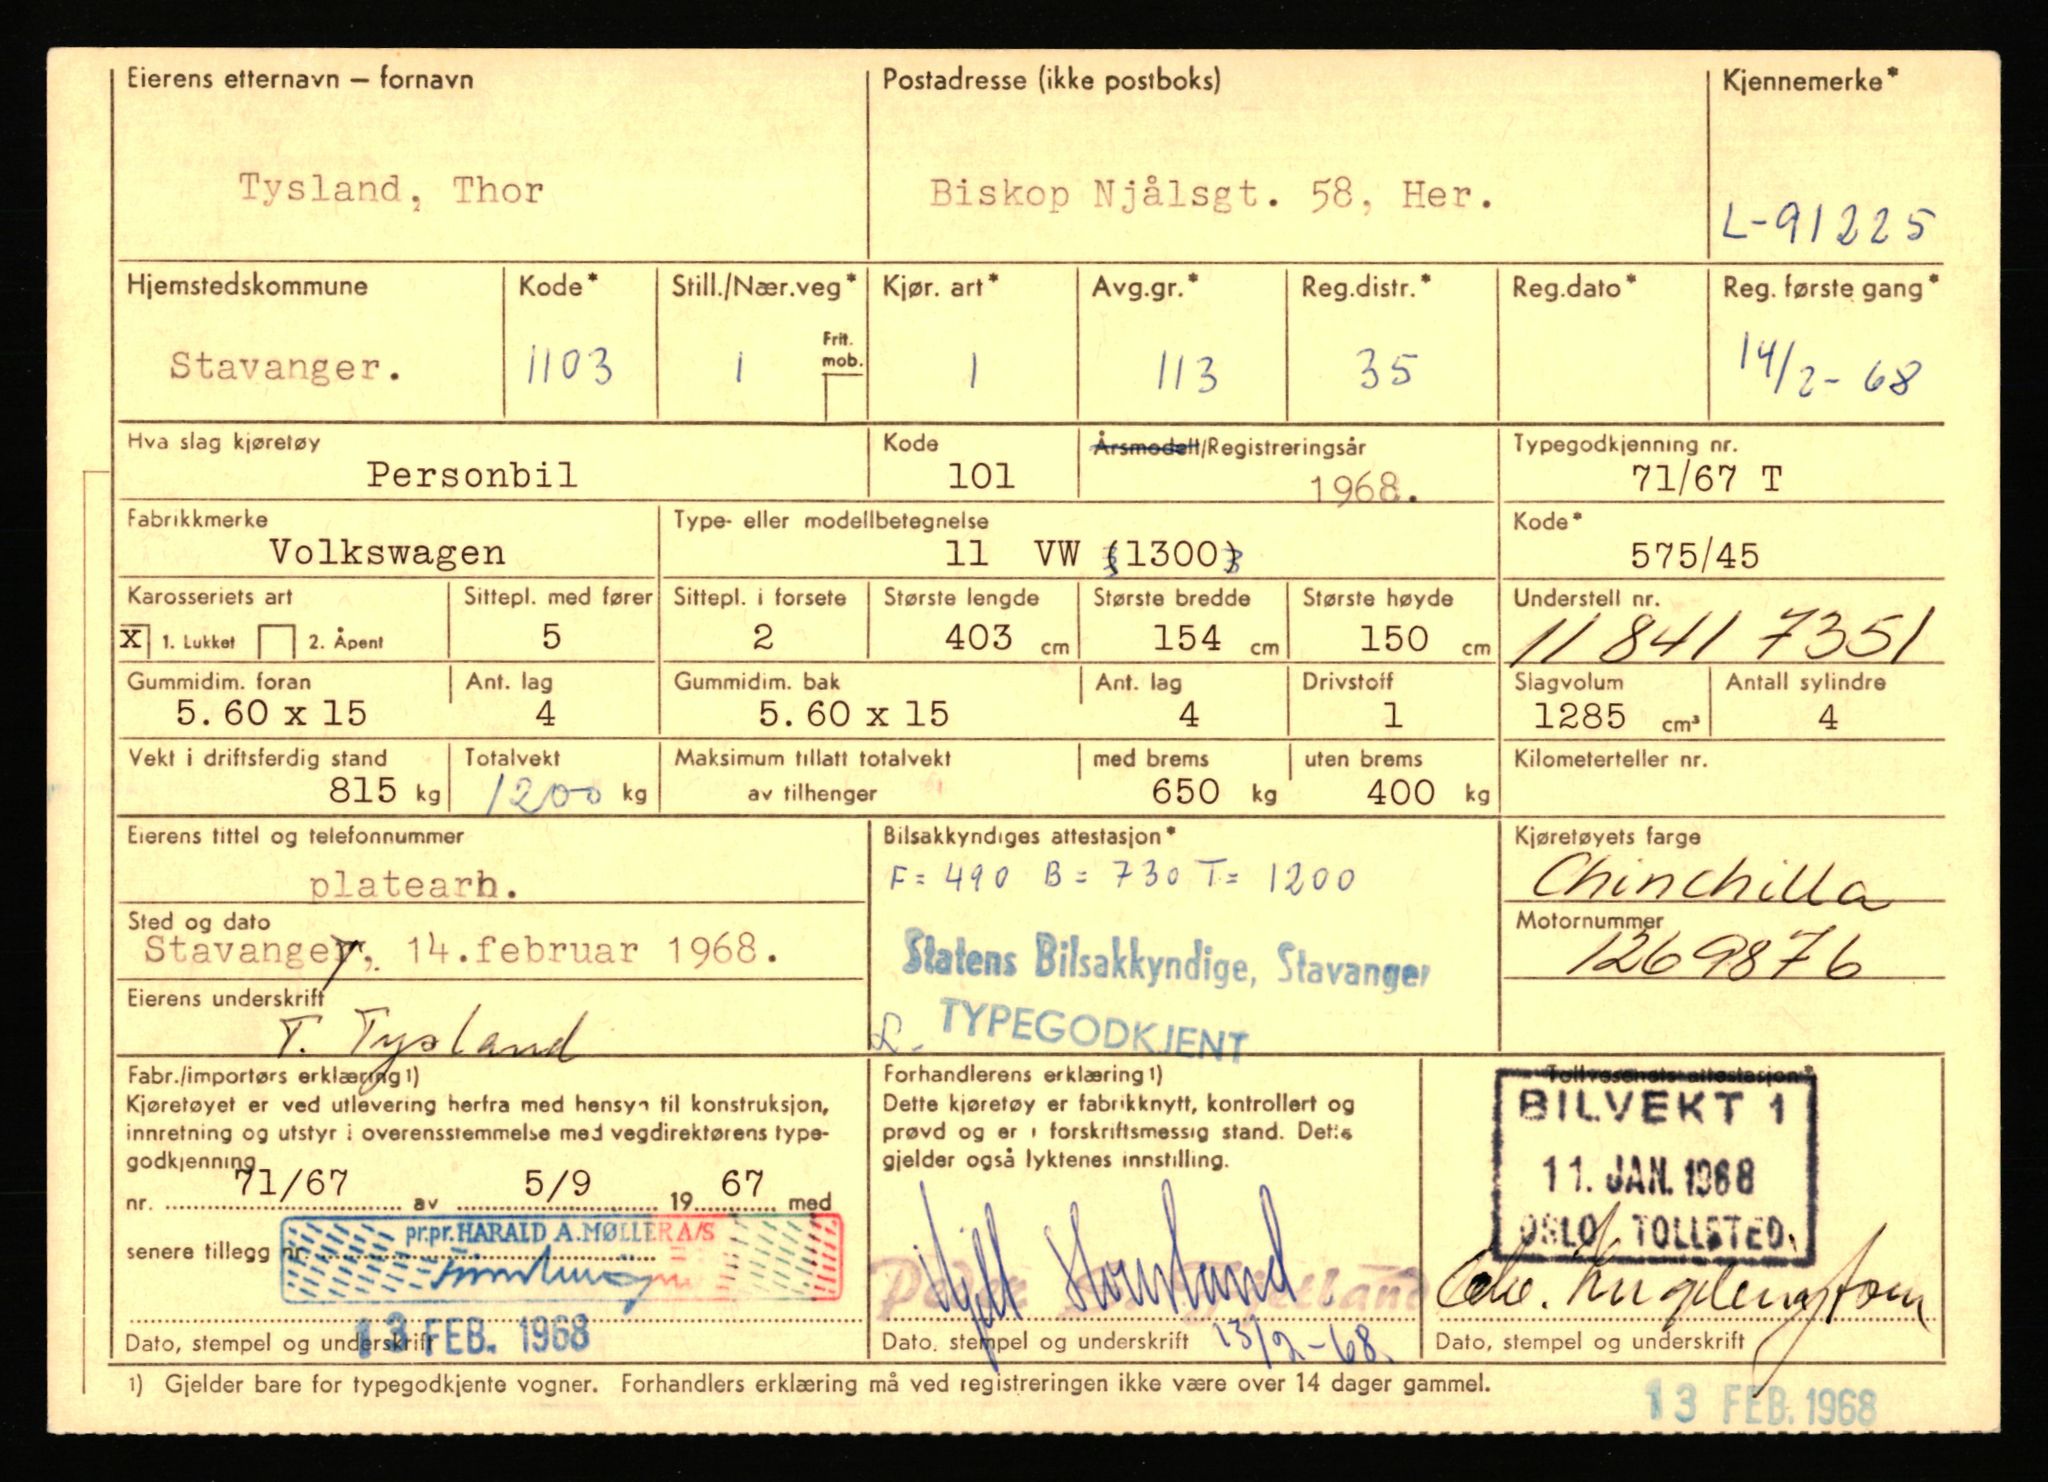 Eierens etternavn — fornavn Postadresse (ikke postboks) Kjennemerke*
Tysland, Thor Biskop Njålsgt. 58, Her. L-91225
Hjemstedskommune Kode* Still./Nær.veg* Kjør. art* Avg.gr.* Reg.distr.* Reg.dato* Reg. første gang*
Frit.
mob.
Stavanger. 1103 1 1 113 35 14/2-68
Hva slag kjøretøy Kode Årsmodell/Registreringsår Typegodkjenning nr.
Personbil 101 1968. 71/67 T
Fabrikkmerke Type- eller modellbetegnelse Kode*
Volkswagen 11 VW (1300) 575/45
Karosseriets art Sittepl. med fører Sittepl. i forsete Største lengde Største bredde Største høyde Understell nr.
X 1. Lukket 2. Åpent 5 2 403 cm 154 cm 150 cm 118417351
Gummidim. foran Ant. lag Gummidim. bak Ant. lag Drivstoff Slagvolum Antall sylindre
5.60 x 15 4 5.60 x 15 4 1 1285 cm³ 4
Vekt i driftsferdig stand Totalvekt Maksimum tillatt totalvekt med brems uten brems Kilometerteller nr.
815 kg 1200 kg av tilhenger 650 kg 400 kg
Eierens tittel og telefonnummer Bilsakkyndiges attestasjon* Kjøretøyets farge
platearb. F= 490 B= 730 T= 1200 Chinchilla
Sted og dato Motornummer
Stavanger, 14.februar 1968. Statens Bilsakkyndige, Stavanger 1269876
Eierens underskrift TYPEGODKJENT
T. Tysland
Fabr./importørs erklæring1) Forhandlerens erklæring1) Tollvesenets attestasjon*
Kjøretøyet er ved utlevering herfra med hensyn til konstruksjon, Dette kjøretøy er fabrikknytt, kontrollert og BILVEKT 1
innretning og utstyr i overensstemmelse med vegdirektørens type- prøvd og er i forskriftsmessig stand. Dette
godkjenning gjelder også lyktenes innstilling. 11. JAN. 1968
nr. 71/67 av 5/9 1967 med
pr.pr. HARALD A. MØLLER A/S OSLO TOLLSTED
senere tillegg nr.
13 FEB. 1968 13/2-68.
Dato, stempel og underskrift Dato, stempel og underskrift Dato, stempel og underskrift
1) Gjelder bare for typegodkjente vogner. Forhandlers erklæring må ved registreringen ikke være over 14 dager gammel.
13 FEB. 1968